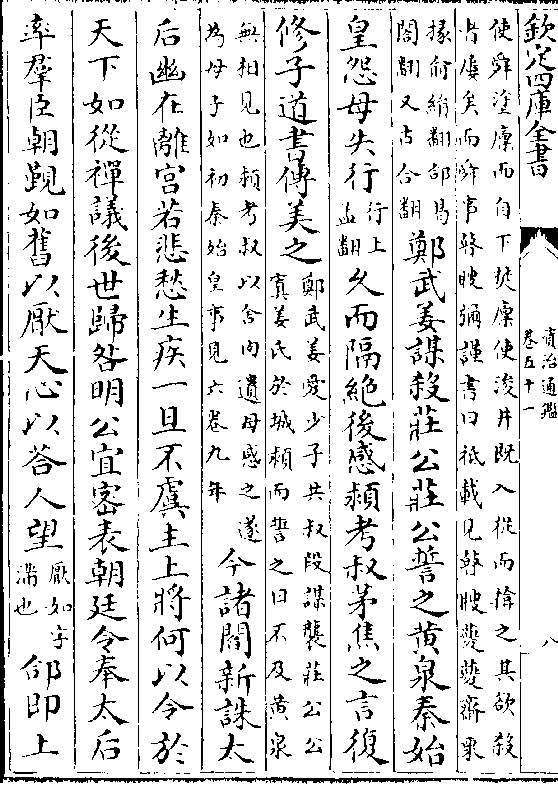 欽定四庫全書
資治通鑑
卷五十一
八
使舜塗廩而自下焚廩使浚井既入從而揜之其欲殺
舜屢矣而舜事瞽瞍彌謹書曰祗載見瞽瞍夔夔齋栗
掾俞絹翻郃曷
閤翻又古合翻
鄭武姜謀殺莊公莊公誓之黄泉秦始
皇怨母失行
行上
孟翻
久而隔絶後感潁考叔茅焦之言復
修子道書傳美之
鄭武姜愛少子共叔段謀襲莊公公
寘姜氏於城潁而誓之曰不及黄泉
無相見也潁考叔以舍肉遺母感之遂
為母子如初秦始皇事見六卷九年
今諸閻新誅太
后幽在離宫若悲愁生疾一旦不虞主上將何以令於
天下如從禪議後世歸咎明公宜密表朝廷令奉太后
率羣臣朝覲如舊以厭天心以答人望
厭如字
滿也
郃即上